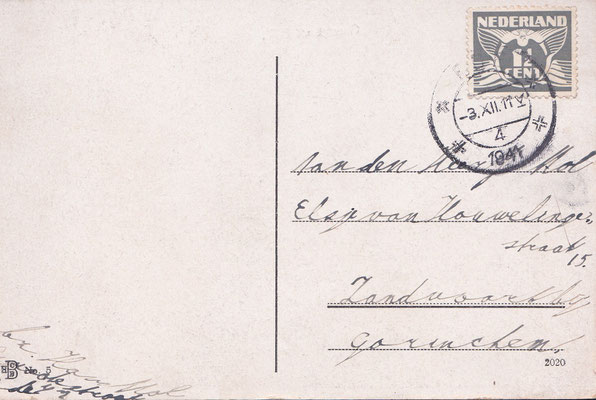 NEDERLAND
1½
CENT
-3.XII.11V
4
1941
Aan den Heer Mol
Elsje van Houwelinge-
straat
15.
Zandvoort by
Gorinchem,
2020
Mol
B No. 5